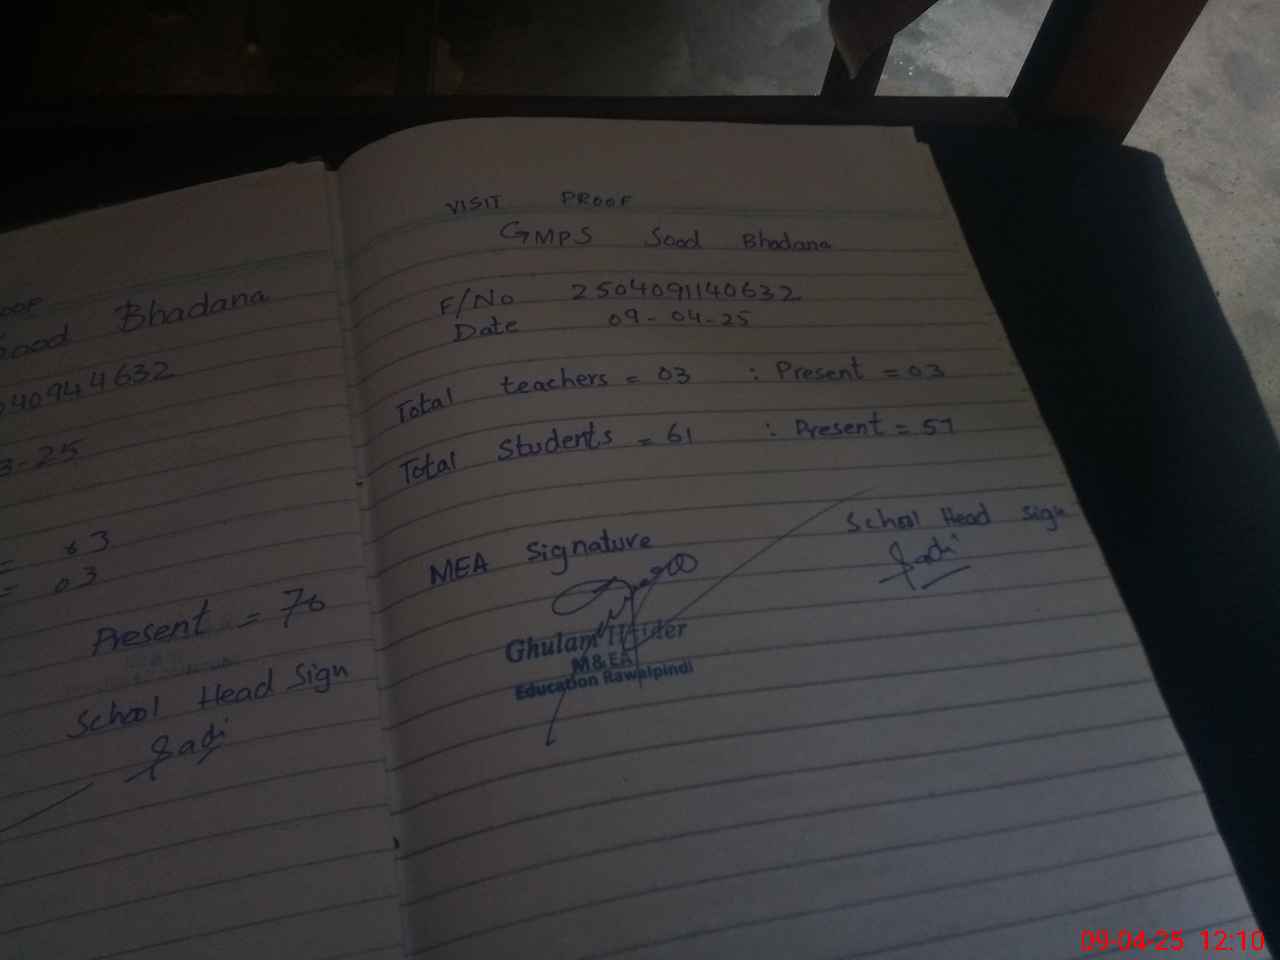 OOF
Sood Bhadana
040944632
3-25
= 03
= 03
Present = 76
School Head Sign
Sadi
VISIT PROOF
GMPS Sood Bhadana
F/No 2504091140632
Date 09-04-25
Total teachers = 03 : Present = 03
Total Students = 61 : Present = 57
MEA Signature
School Head Sign
Sadi
Ghulam Haider
M&EA
Education Rawalpindi
09-04-25 12:10